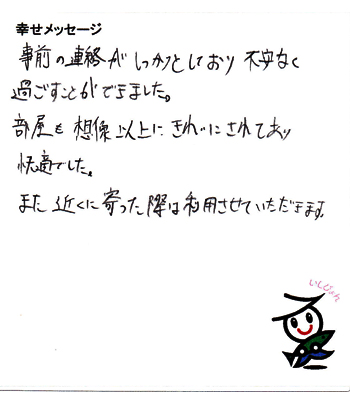 幸せメッセージ
事前の連絡がしっかりとしており 不安なく
過ごすことができました。
部屋も想像以上にきれいにされており
快適でした。
また近くに寄った際は利用させていただきます。